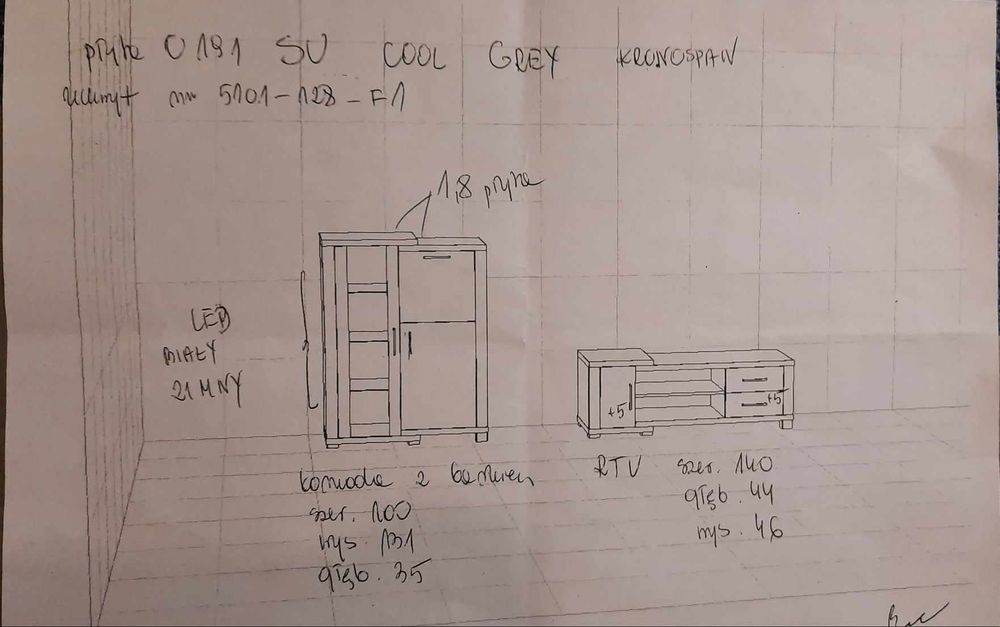 płyta 0191 SU COOL GREY KRONOSPAN
uchwyt nr 5101-128-F1
1,8 płyta
LED
BIAŁY
ZIMNY
+5
+5
komoda z barkiem
szer. 100
wys. 131
głęb. 35
RTV szer. 140
głęb. 44
wys. 46